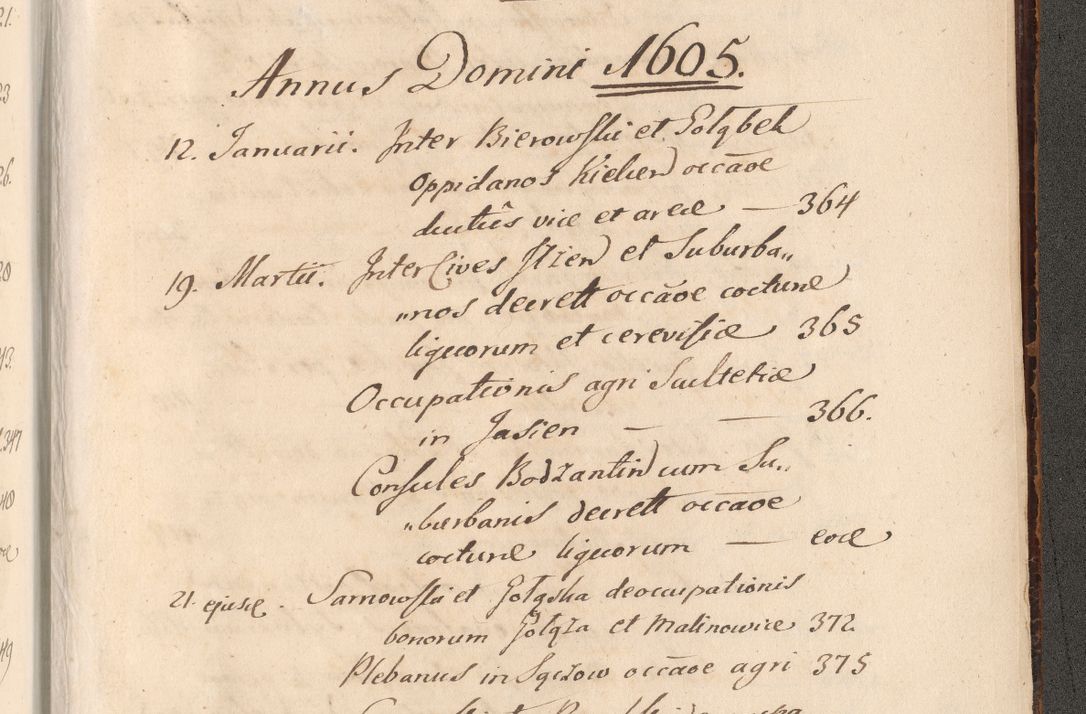 Annus Domini 1605.
12. Januarii. Inter Bierowski et Gołąbek
oppidanos Kielcen occāoe
ductûs viæ et areæ — 364
19. Martii. Inter Cives Iłżen et Suburba„
„nos decrett occāoe cocturæ
liquorum et cerevisiæ 365
Occupationis agri Scultetiæ
in Jasien — — 366.
Consules Bodzantin cum Su„
„burbanis decrett occāoe
cocturæ liquorum — eod
21. ejusd. Sarnowski et Gołąska de occupationis
bonorum Gołąza et Malinowice 372
Plebanus in Sączow occāoe agri 375